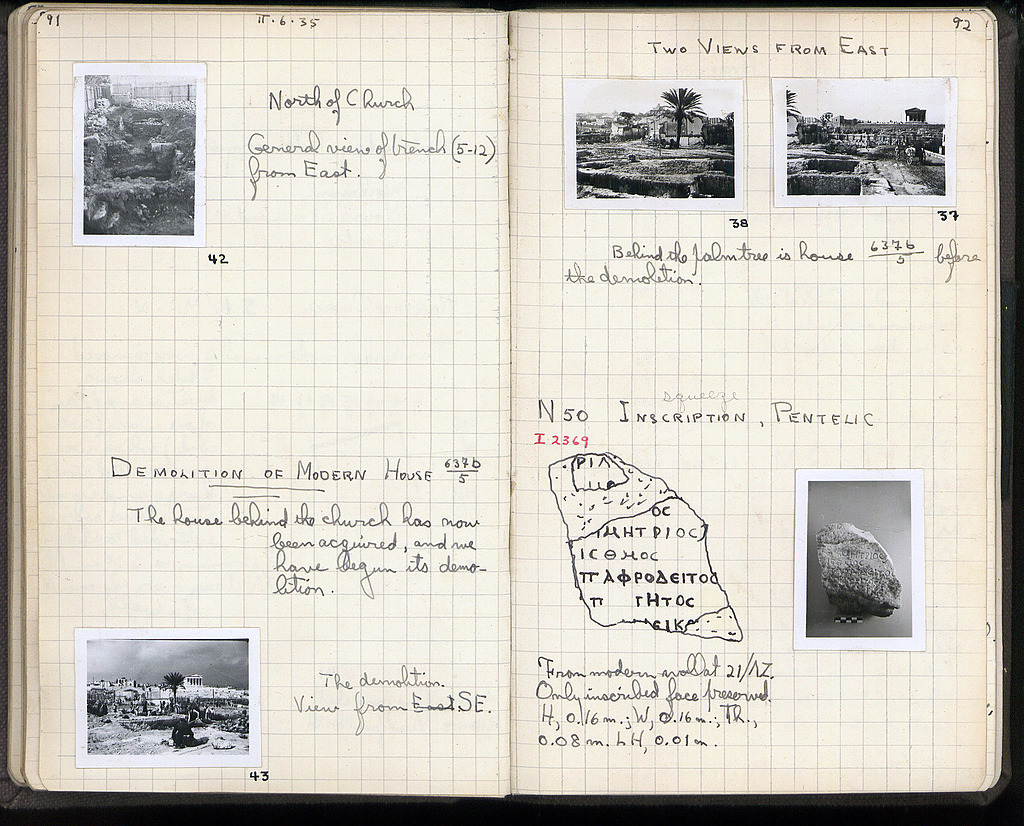 91
π·6·35
North of Church
General view of trench (5-12)
from East.
42
DEMOLITION OF MODERN HOUSE 637b/5
The house behind the church has now
been acquired, and we
have begun its demo-
lition.
The demolition.
View from East SE.
43
92
TWO VIEWS FROM EAST
38
37
Behind the palm tree is house 637b/5 before
the demolition.
squeeze
N 50 INSCRIPTION, PENTELIC
I 2369
ΡΙΛ
ΟϹ
ΜΗΤΡΙΟϹ
ΙϹΘΜΟϹ
ΠΑΦΡΟΔΕΙΤΟϹ
Π ΓΗΤΟϹ
ΕΙΚ
From modern wall at 21/ΛΖ.
Only inscribed face preserved.
H, 0.16 m.; W, 0.16 m.; Th.,
0.08 m. LH, 0.01 m.